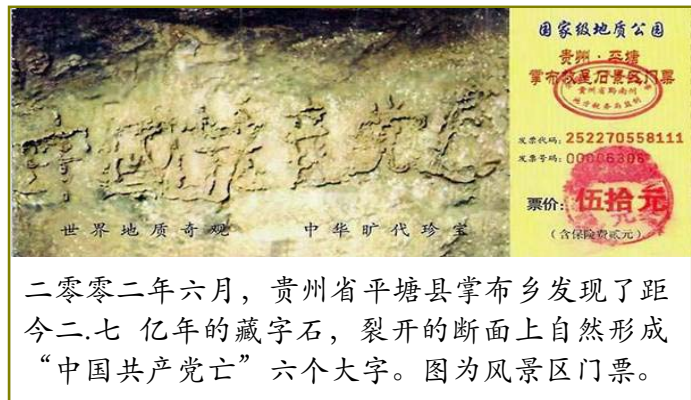 世界地质奇观 中华旷代珍宝
国家级地质公园
贵州·平塘
掌布救星石景区门票
贵州省黔南州
地方税务局监制
发票代码: 252270558111
发票号码: 00006306
票价: 伍拾元
(含保险费贰元)
二零零二年六月，贵州省平塘县掌布乡发现了距
今二.七 亿年的藏字石，裂开的断面上自然形成
“中国共产党亡”六个大字。图为风景区门票。